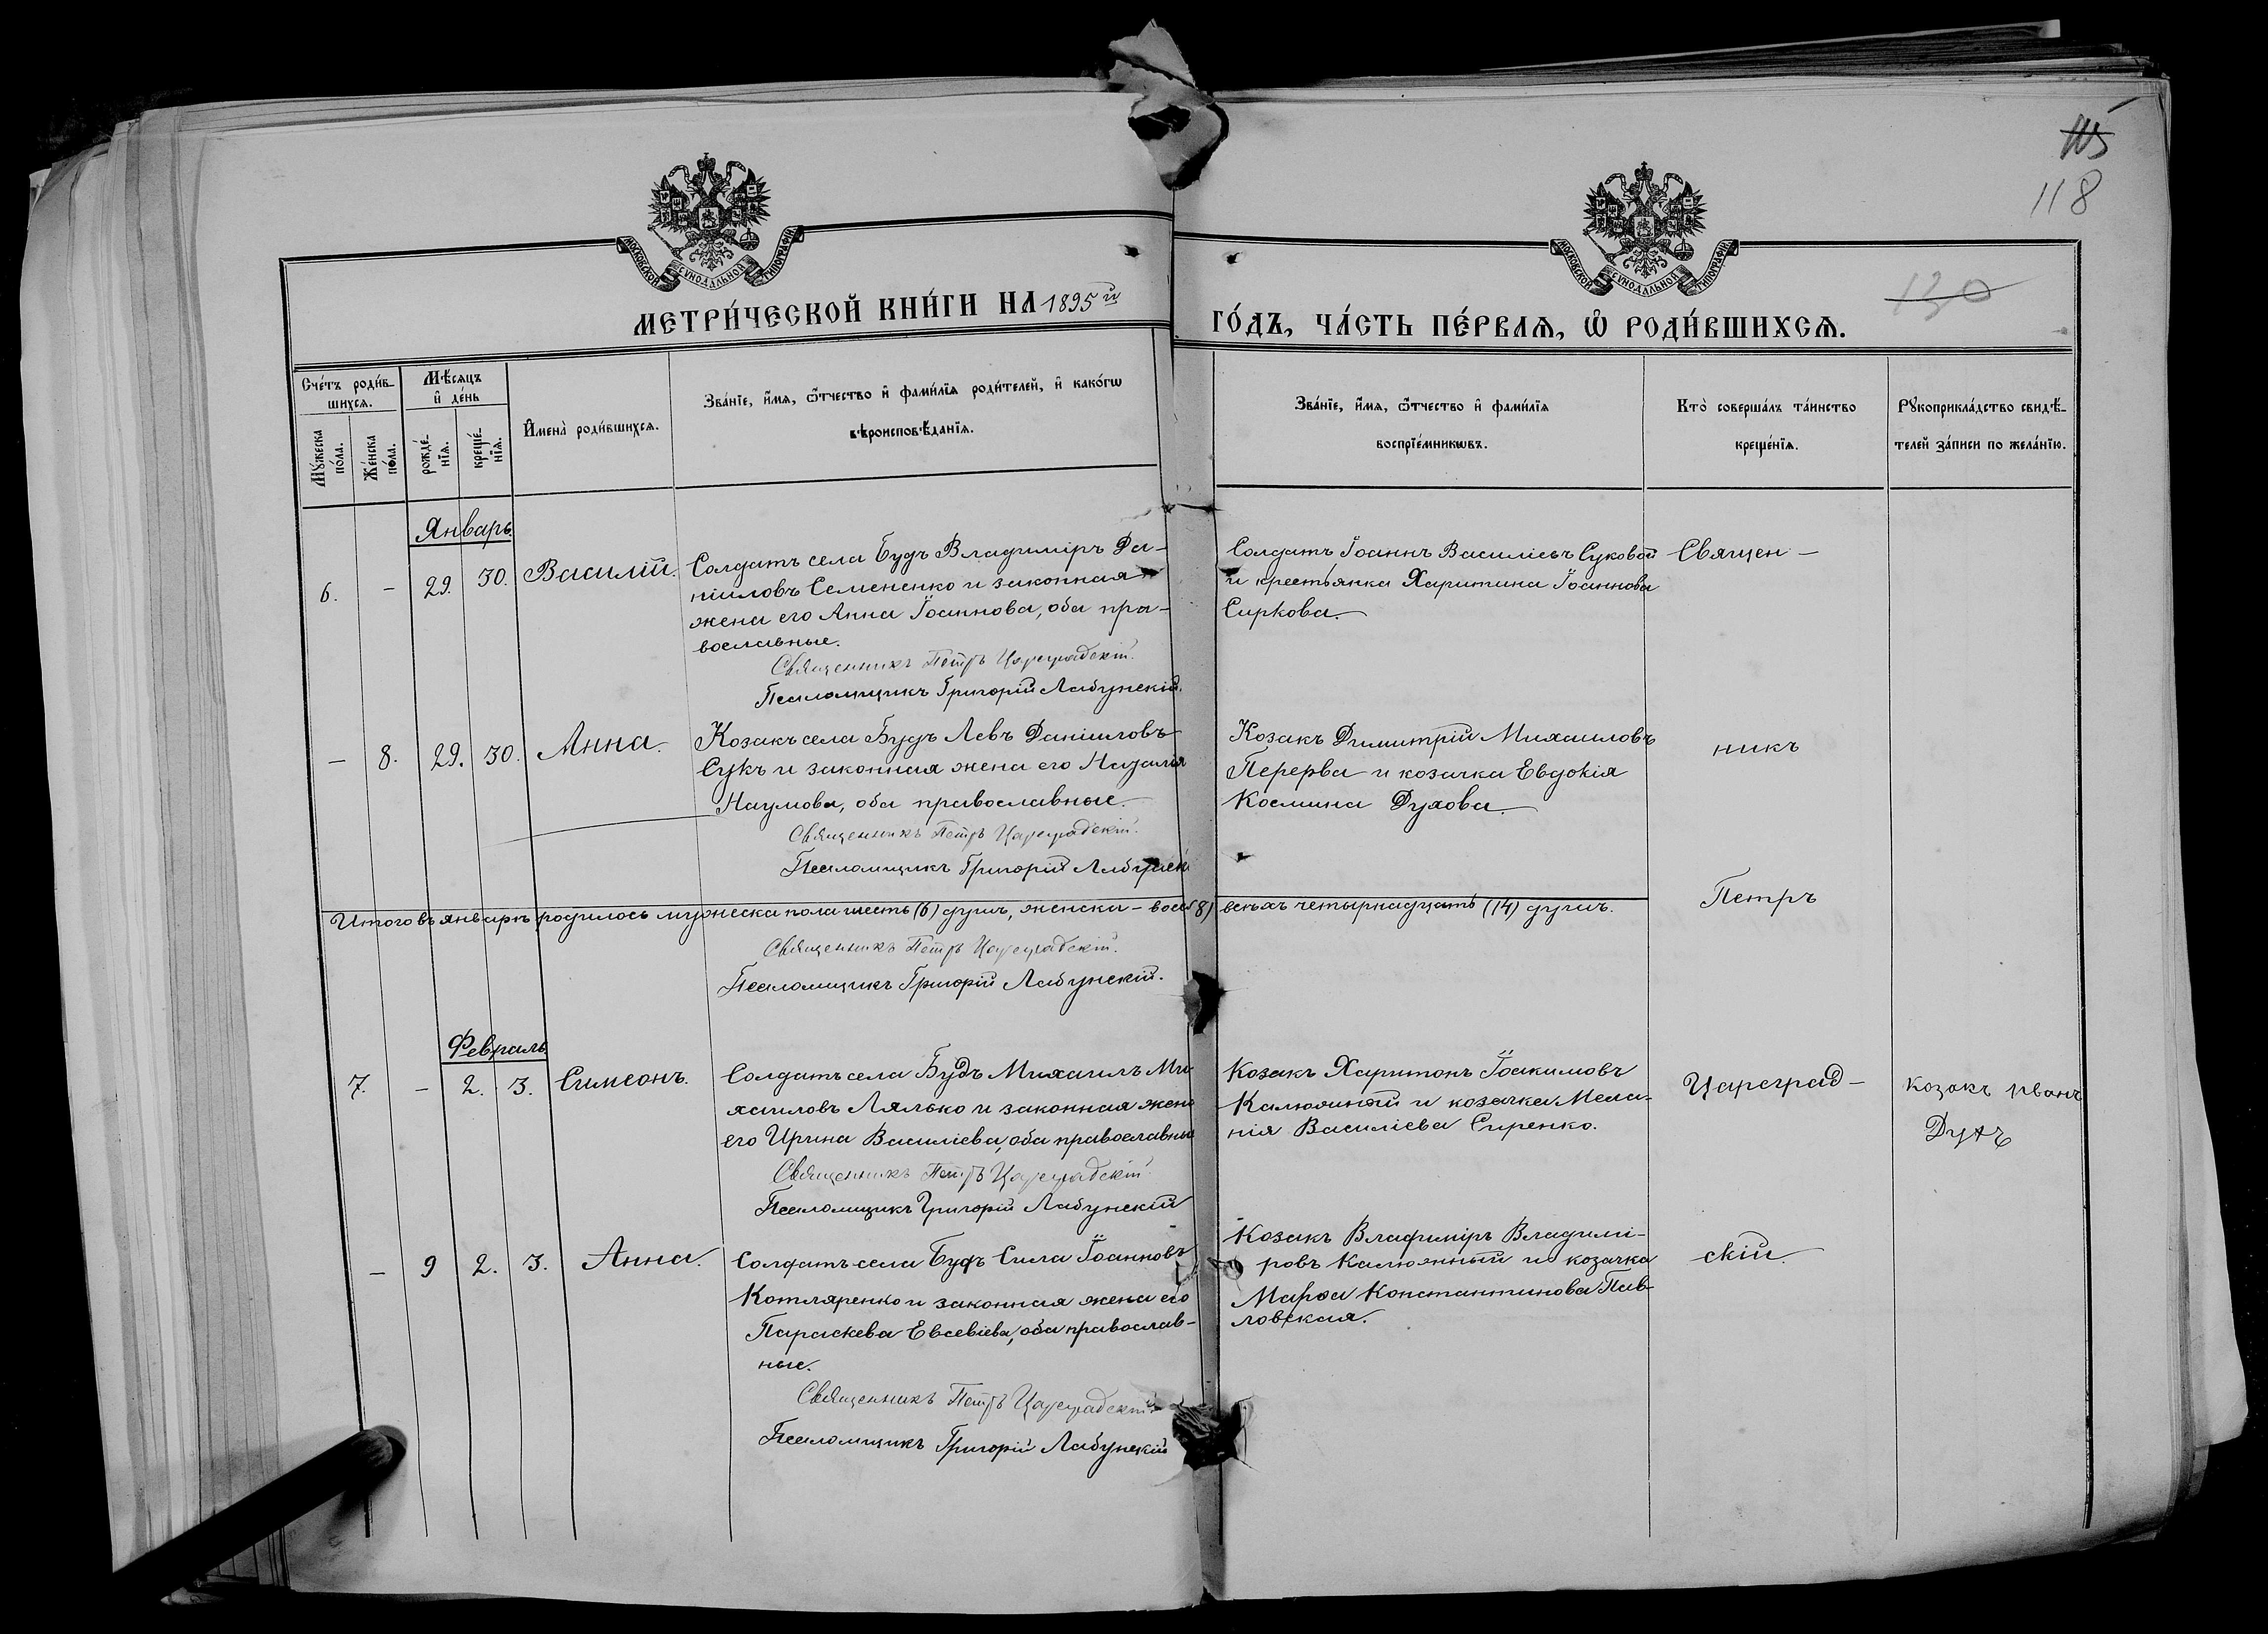 115
118
130
МОСКОВСКОЙ СУНОДАЛЬНОЙ ТИПОГРАФІИ
МОСКОВСКОЙ СУНОДАЛЬНОЙ ТИПОГРАФІИ
МЕТРИ́ЧЕСКОЙ КНИ́ГИ НА 1895й
ГО́ДЪ, ЧА́СТЬ ПЕ́РВАѦ, Ѽ РОДИ́ВШИХСѦ.
Сче́тъ роди́в-
шихсѧ.
Мѣ́сѧцъ
и҆ де́нь
Мꙋ́жеска
по́ла.
Же́нска
по́ла.
рожде́-
нїѧ.
креще́-
нїѧ.
И҆мена̀ роди́вшихсѧ.
Зва́нїе, и҆́мѧ, ѻ҆́тчество и҆ фами́лїѧ роди́телей, и҆ како́гѡ
вѣроисповѣ́данїѧ.
Зва́нїе, и҆́мѧ, ѻ҆́тчество и҆ фами́лїѧ
воспрїе́мникѡвъ.
Кто̀ соверша́лъ та́инство
креще́нїѧ.
Рꙋкоприкла́дство свидѣ́-
телей за́писи по жела́нїю.
Январь.
6. - 29. 30. Василій.
Солдатъ села Будъ Владиміръ Да-
ніиловъ Семененко и законная
жена его Анна Іоаннова, оба пра-
вославные.
Священникъ Петръ Цареградскій.
Псаломщикъ Григорій Лабунскій.
Солдатъ Іоаннъ Василіевъ Суковой
и крестьянка Харитина Іоаннова
Сиркова.
Священ-
- 8. 29. 30. Анна.
Козакъ села Будъ Левъ Даніиловъ
Сукъ и законная жена его Наталія
Наумова, оба православные.
Священникъ Петръ Цареградскій.
Псаломщикъ Григорій Лабунскі
Козакъ Димитрій Михаиловъ
Перерва и козачка Евдокія
Космина Духова.
никъ
Итого въ январѣ родилось мужеска пола шесть (6) душъ, женска - восем 8) всѣхъ четырнадцать (14) душъ.
Петръ
Священникъ Петръ Цареградскій.
Псаломщикъ Григорій Лабунскій.
Февраль
7. - 2. 3. Симеонъ.
Солдатъ села Будъ Михаилъ Ми
хаиловъ Лялько и законная жена
его Ирина Василіева, оба православны
Священникъ Петръ Цареградскій
Псаломщикъ Григорій Лабунскій
Козакъ Харитонъ Іоакимовъ
Калюжный и козачка Мела-
нія Василіева Сиренко.
Цареград-
козакъ Иванъ
Духъ
- 9 2. 3. Анна.
Солдатъ села Будъ Сила Іоанновъ
Котляренко и законная жена его
Параскева Евсевіева, оба православ-
ные.
Священникъ Петръ Цареградскій
Псаломщикъ Григорій Лабунскій
Козакъ Владиміръ Владимі-
ровъ Калюжный и козачка
Марѳа Константинова Пав-
ловская.
скій.